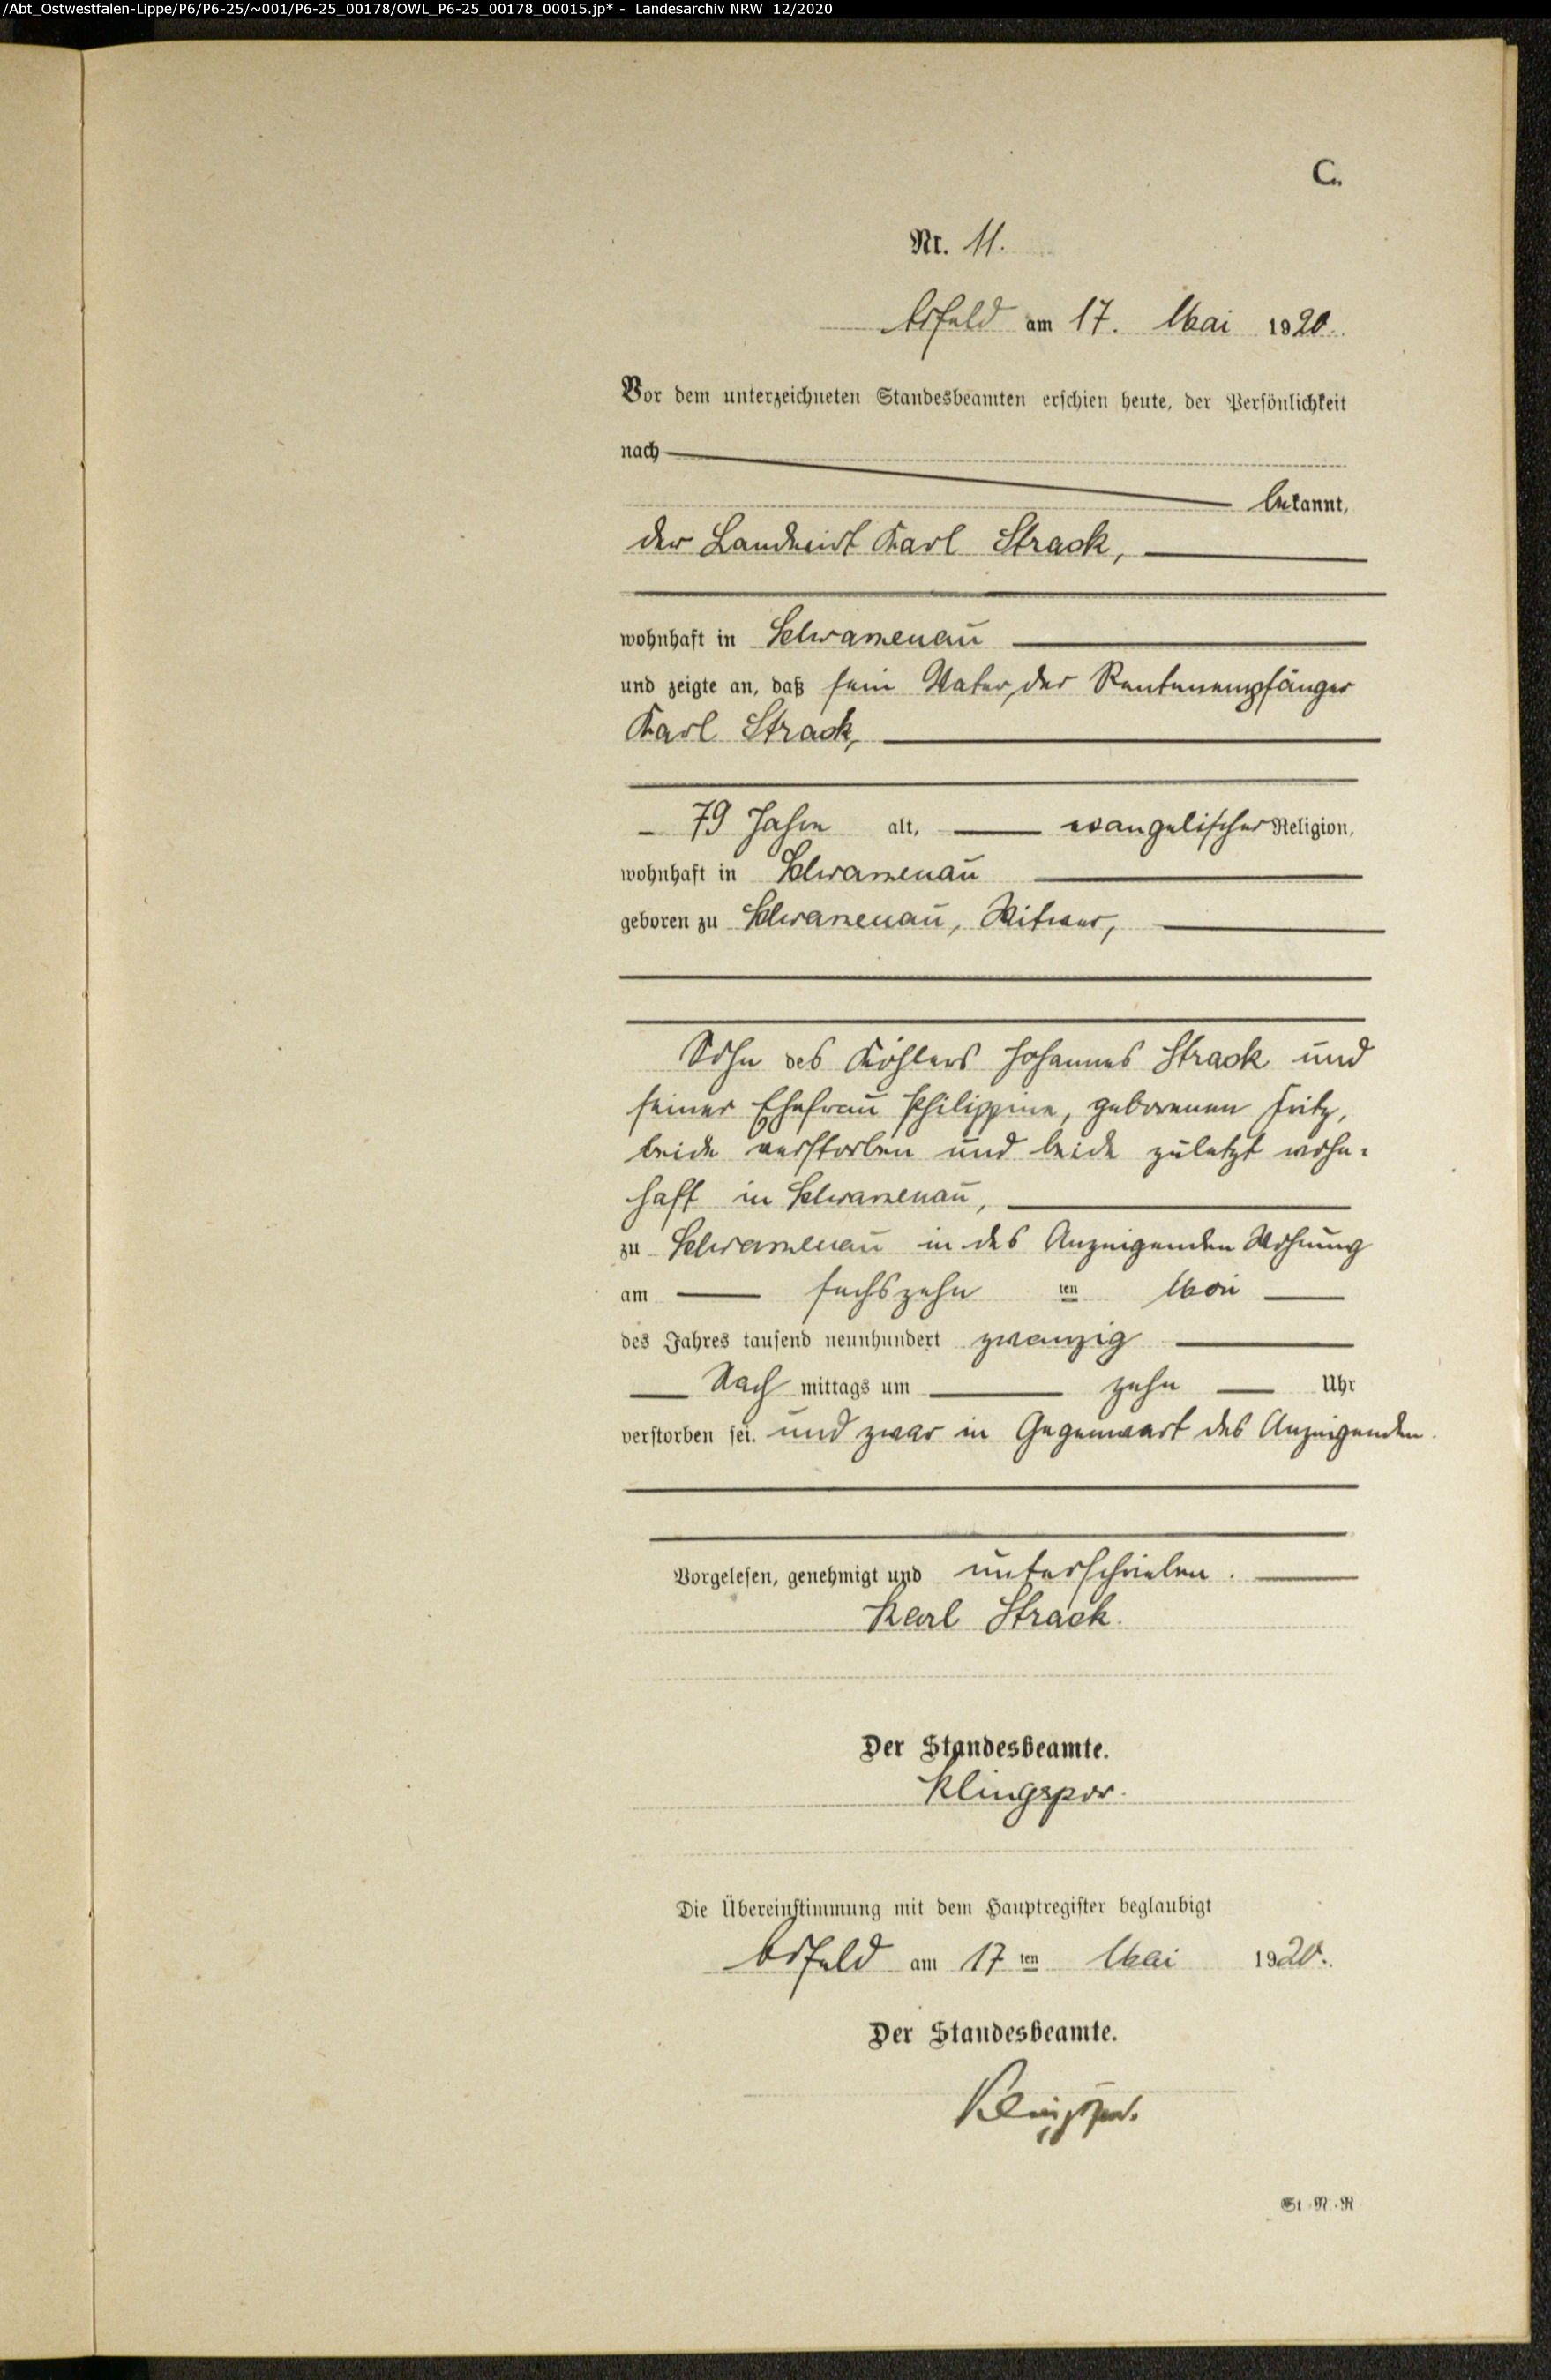 /Abt_Ostwestfalen-Lippe/P6/P6-25/~001/P6-25_00178/OWL_P6-25_00178_00015.jp* - Landesarchiv NRW 12/2020
C.
Nr. 11.
Arfeld am 17. Mai 1920.
Vor dem unterzeichneten Standesbeamten erschien heute, der Persönlichkeit
nach
bekannt,
der Landwirt Karl Strack,
wohnhaft in Schwarzenau
und zeigte an, daß sein Vater, der Rentenempfänger
Karl Strack,
79 Jahre alt, evangelischer Religion,
wohnhaft in Schwarzenau
geboren zu Schwarzenau, Witwer,
Sohn des Köhlers Johannes Strack und
seiner Ehefrau Philippine, geborenen Fritz,
beide verstorben und beide zuletzt wohn-
haft in Schwarzenau,
zu Schwarzenau in des Anzeigenden Wohnung
am sechszehn ten Mai
des Jahres tausend neunhundert zwanzig
Nach mittags um zehn Uhr
verstorben sei. und zwar in Gegenwart des Anzeigenden.
Vorgelesen, genehmigt und unterschrieben.
Karl Strack.
Der Standesbeamte.
Klingspor.
Die Übereinstimmung mit dem Hauptregister beglaubigt
Arfeld am 17 ten Mai 1920.
Der Standesbeamte.
Klingspor.